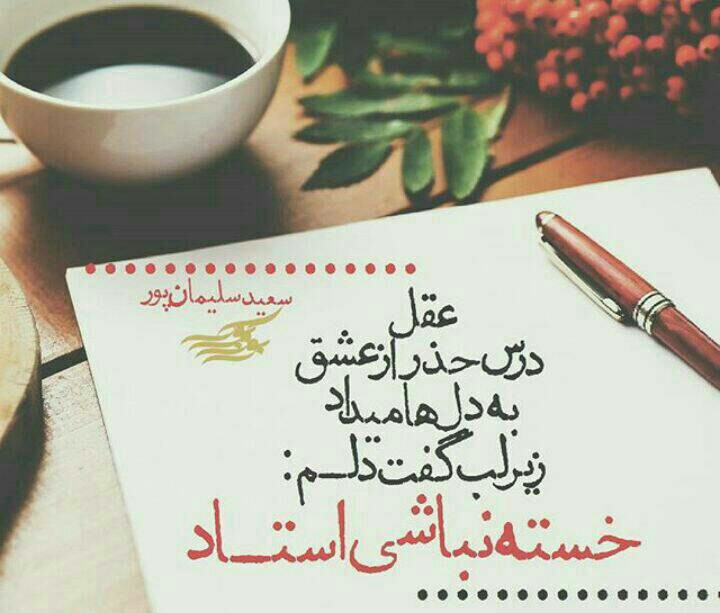 سعید سلیمان‌پور
عقل
درس حذر از عشق
به دل ها میداد
زیر لب گفت دلم:
خسته نباشی استاد